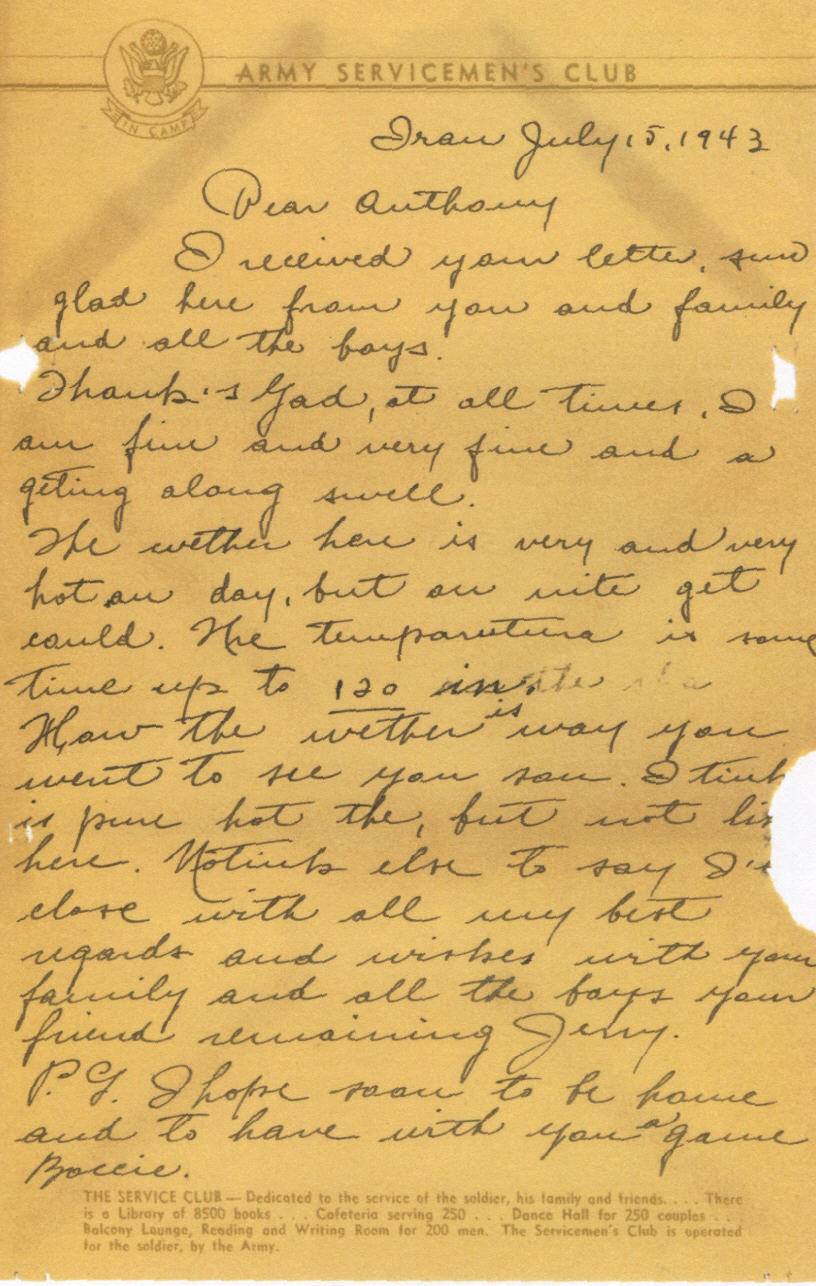 ARMY SERVICEMEN'S CLUB
IN CAMP
Iran July 15, 1943
Dear Anthony
I received your letter, sure
glad here from you and family
and all the boys.
Thank's God, at all times, I
am fine and very fine and a
geting along swell.
The wether here is very and very
hot on day, but on nite get
could. The temparutura is some
time up to 120 in the sha
How the wether is way you
went to see you son. I tink
is pure hot the, but not li
here. Notink else to say I'
close with all my best
regards and wishes with your
family and all the boys your
friend remaining Jerry.
P.S. I hope soon to be home
and to have with you a game
Boccie.
THE SERVICE CLUB — Dedicated to the service of the soldier, his family and friends. . . . There
is a Library of 8500 books . . . Cafeteria serving 250 . . . Dance Hall for 250 couples . . .
Balcony Lounge, Reading and Writing Room for 200 men. The Servicemen's Club is operated
for the soldier, by the Army.